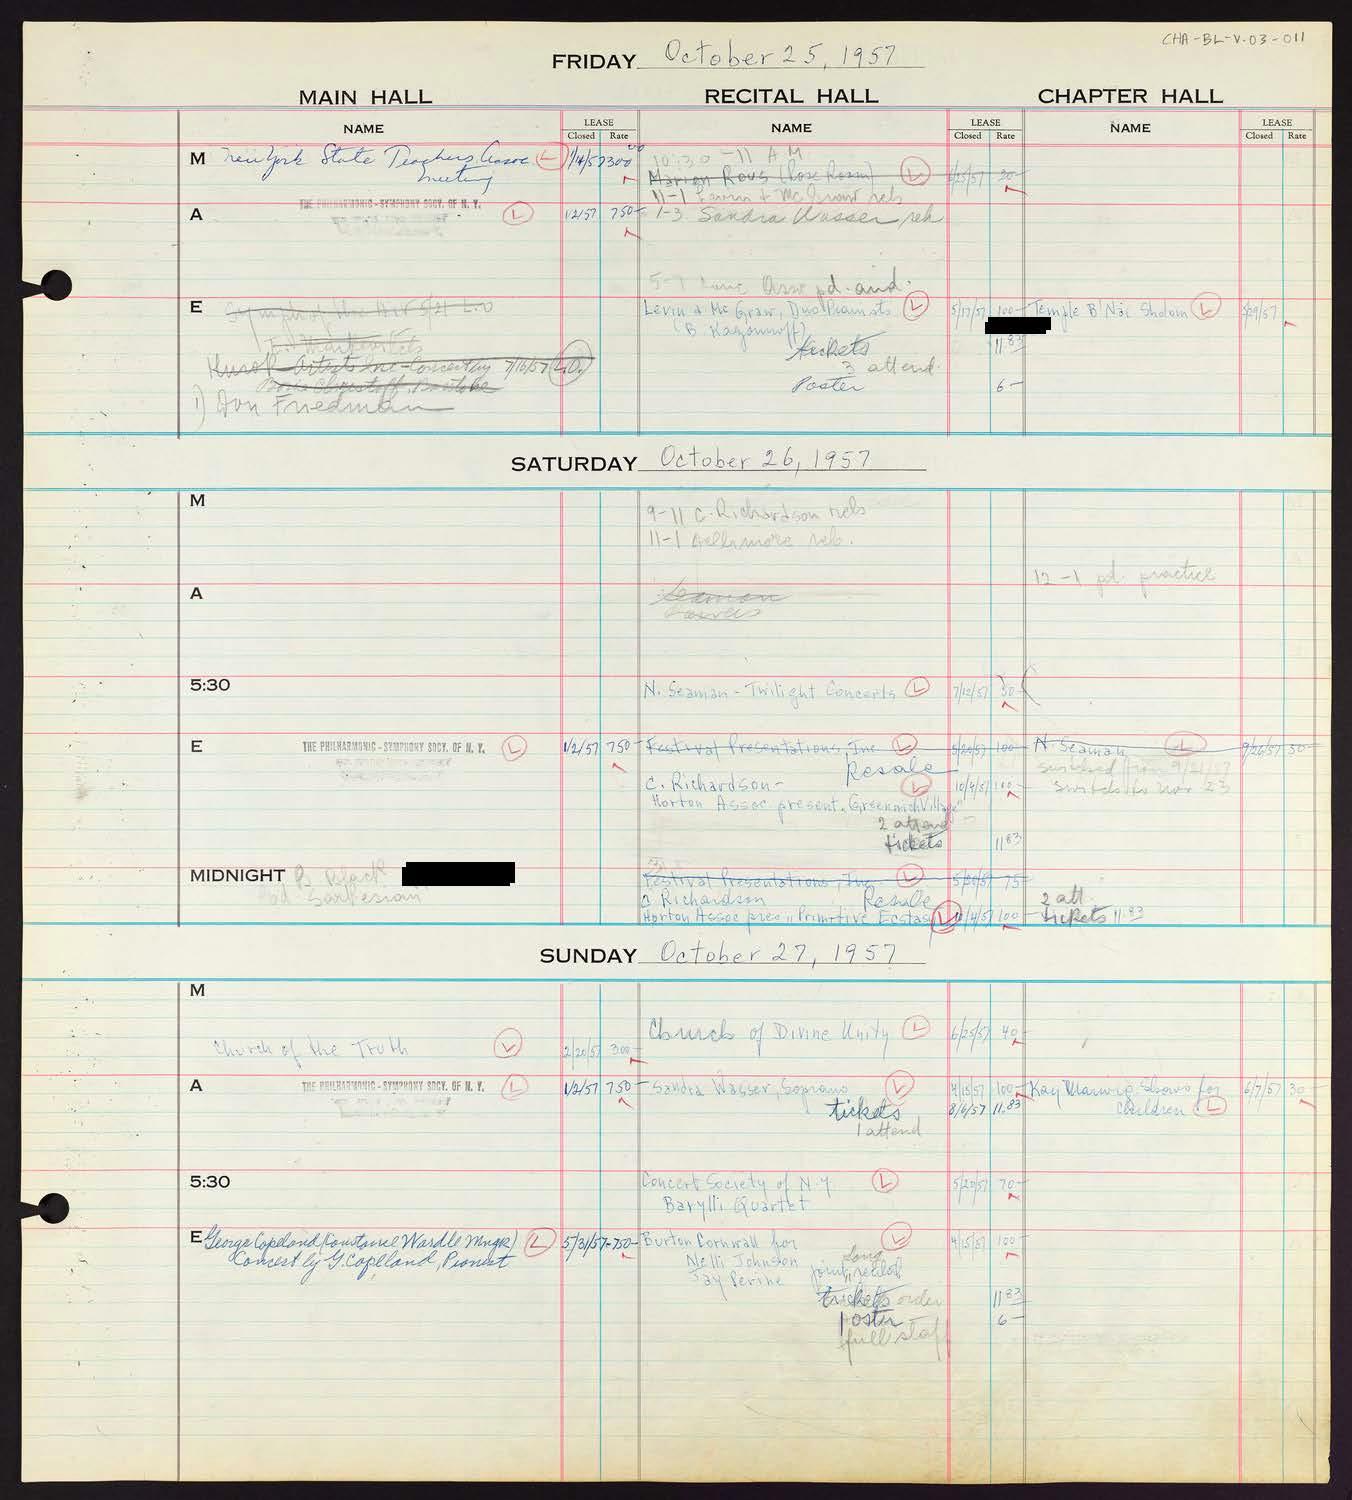 CHA-BL-V-03-011
FRIDAY October 25, 1957
MAIN HALL RECITAL HALL CHAPTER HALL
NAME LEASE Closed Rate NAME LEASE Closed Rate NAME LEASE Closed Rate
M New York State Teachers Assoc. L 300 00
meeting
10:30-11 A M
Marion Rous (Rose Room) L 30-
11-1 Levin & McGraw reh
A THE PHILHARMONIC-SYMPHONY SOCY. OF N. Y. L 1/2/57 750- 1-3 Sandra Wasser reh
5-7 pd. aud.
E Symphony of the Air 5/21
Levin & McGraw, Duo Pianists L 5/17/57 100- Temple B'Nai Sholom L 5/29/57
(B. Kagannoff)
tickets 11.83
Hurok Artists Inc - Concert by 7/16/57 L.O.
3 attend.
Boris Christoff, Baritone
Poster 6-
1) Don Friedman
SATURDAY October 26, 1957
M
9-11 C. Richardson reh
11-1 Gellimore reh.
12-1 pd. practice
A Seaman
5:30 N. Seaman - Twilight Concerts L 7/12/57 30-
E THE PHILHARMONIC-SYMPHONY SOCY. OF N. Y. L 1/2/57 750- Festival Presentations, Inc L 5/20/57 100- N. Seaman L 9/26/57 30-
Resale
switched from 9/21/57
C. Richardson- L 10/4/57 100-
switch to Nov 23
Horton Assoc. present "Greenwich Village"
2 attend
tickets 11.83
MIDNIGHT B. Black
Festival Presentations, Inc. L 5/20/57 75-
C Richardson Resale
2 att.
Horton Assoc pres "Primitive Ecstasy" L 10/4/57 100- tickets 11.83
SUNDAY October 27, 1957
M
Church of Divine Unity L 6/25/57 40-
Church of the Truth L 2/20/57 300-
A THE PHILHARMONIC-SYMPHONY SOCY. OF N. Y. L 1/2/57 750- Sandra Wasser, Soprano L 4/15/57 100- Kay Marwig Shows for 6/7/57 30-
tickets 8/6/57 11.83 Children L
1 attend
5:30 Concert Society of N.Y L 5/20/57 70-
Barylli Quartet
E George Copeland (Constance Wardle Mngr) L 5/31/57-750- Burton Cornwall for L 4/15/57 100-
Concert by G. Copeland, Pianist
Nelli Johnson joint recital
song
Jay Perine
tickets order 11.83
poster 6-
full staff